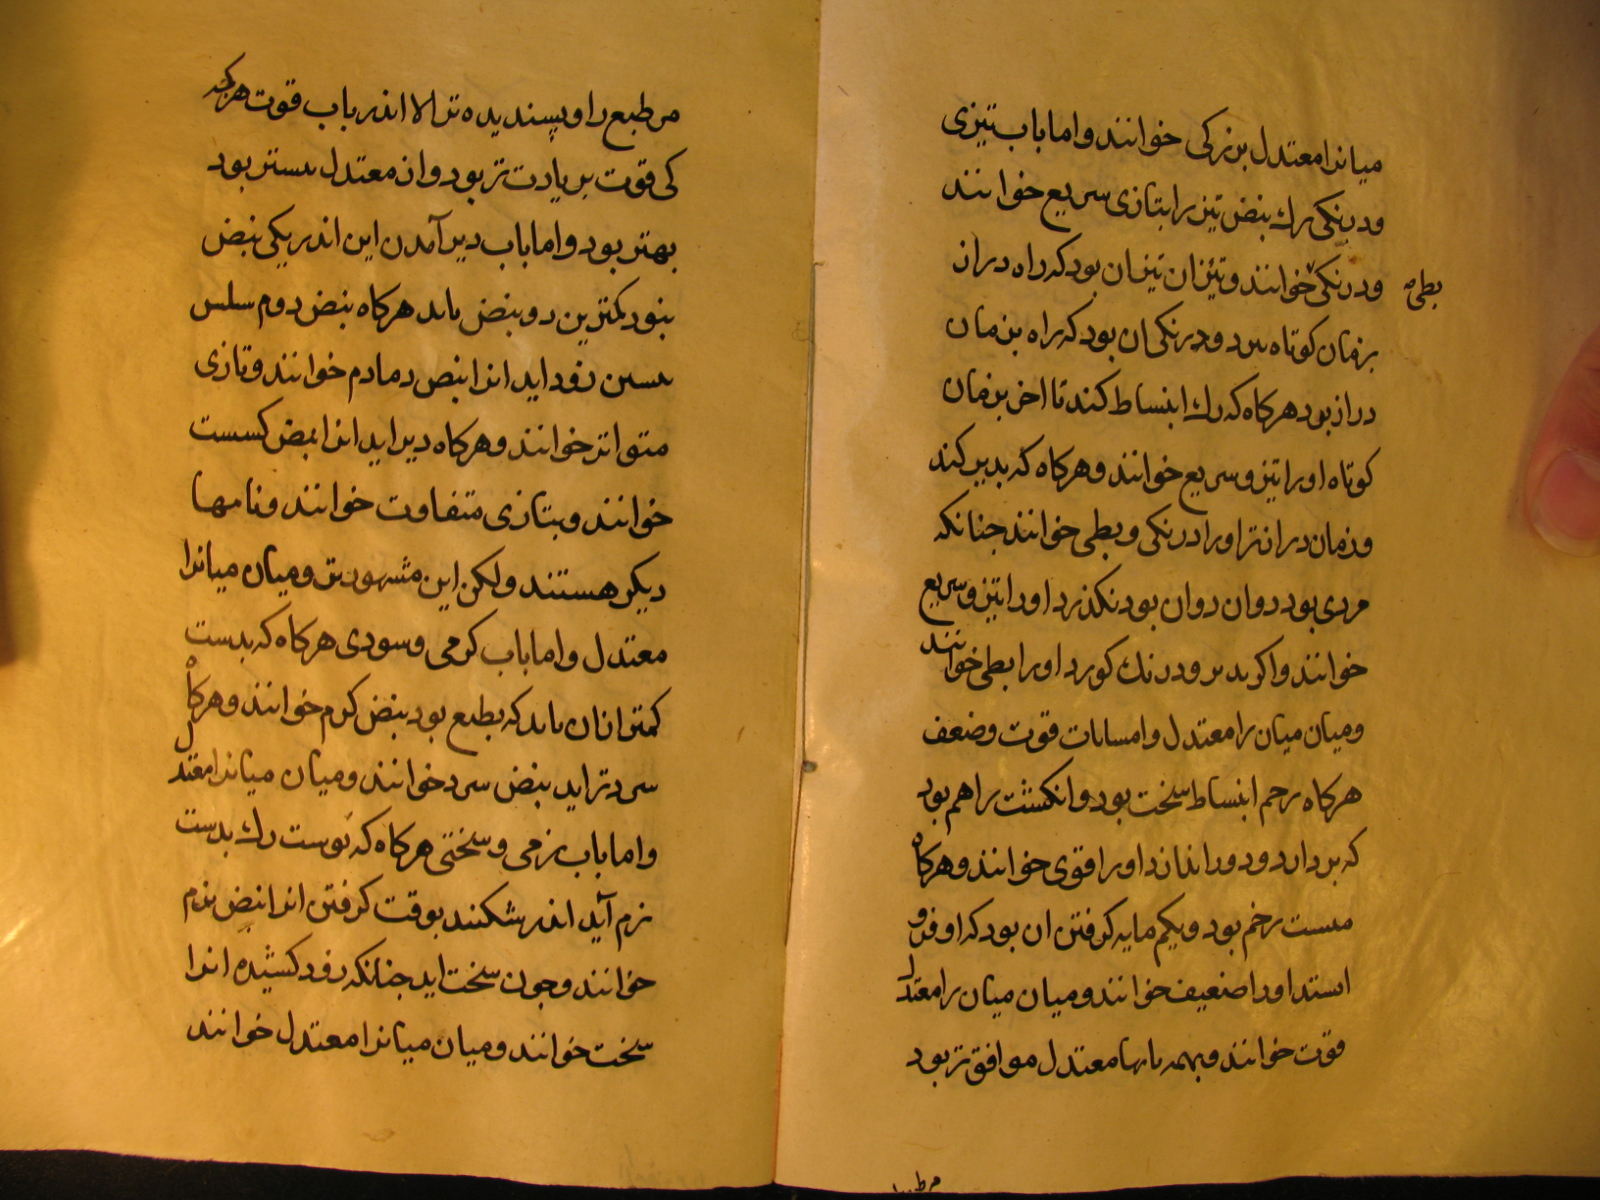 میانرا معتدل بزرکی خوانند واما باب تیزی
ودرنکی رك نبض تیز را بتازی سریع خوانند
ودرنکی خوانند وتیزان تیزان بود که راه دراز
بطی
بزمان کوتاه برد ودرنکی ان بود که راه بزمان
دراز بود هرکاه که رك انبساط کند تا اخر بزمان
کوتاه اورا تیز وسریع خوانند وهرکاه که بدیر کند
وزمان درازتر اورا درنکی وبطی خوانند جنانکه
مردی بود دوان دوان بود نکذرد اورا تیز وسریع
خوانند واکر بدیر ودرنك کورد اورا بطی خوانند
ومیان میان را معتدل واما باب قوت وضعف
هرکاه زخم انبساط سخت بود وانکشت را هم بود
که بردارد ودور اندازد اورا قوی خوانند وهرکاه
سست زخم بود وبکم مایه کرفتن ان بود که او فرو
ایستد اورا ضعیف خوانند ومیان میان را معتدل
قوت خوانند وبهمه بابها معتدل موافق تر بود
مر طبع را وپسندیده تر الا اندر باب قوت هرکه
کی قوت بزیادت تر بود وان معتدل بیستر بود
بهتر بود واما باب دیر آمدن این اندر یکی نبض
نبود کمترین دو نبض باید هرکاه نبض دوم سلس
بیسین زود اید انرا نبض دمادم خوانند وتازی
متواتر خوانند وهرکاه دیر اید انرا نبض کسست
خوانند وبتازی متفاوت خوانند ونامها
دیکر هستند ولکن این مشهورتر ومیان میانرا
معتدل واما باب کرمی وسردی هرکاه که بدست
کمتر ازان باید که بطبع بود نبض کرم خوانند وهرکاه
سردتر اید نبض سرد خوانند ومیان میانرا معتدل
واما باب نرمی وسختی هرکاه که پوست رك بدست
نرم آید اندر شکنند بوقت کرفتن انرا نبض نرم
خوانند وجون سخت اید جنانکه رود کشیده انرا
سخت خوانند ومیان میانرا معتدل خوانند